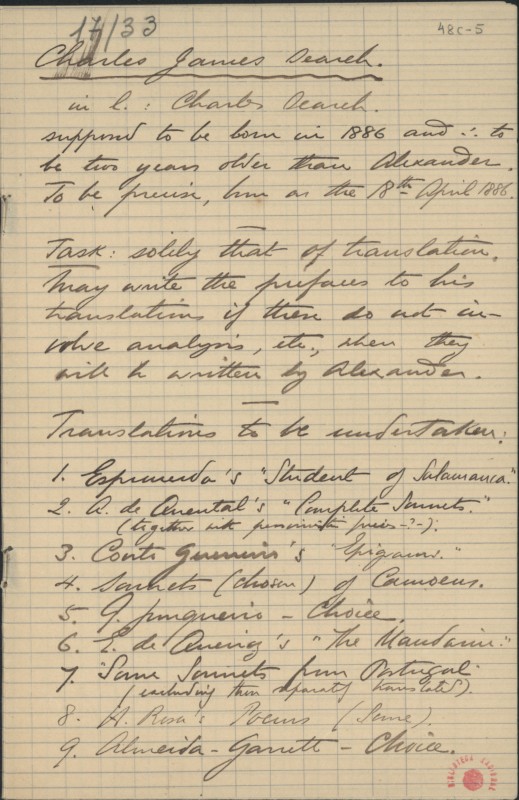 17/33
48C-5
Charles James Search.
in l.: Charles Search.
supposed to be born in 1886 and ∴ to
be two years older than Alexander.
To be precise, born on the 18th April 1886.
Task: solely that of translation.
May write the prefaces to his
translations if these do not in-
volve analysis, etc., when they
will be written by Alexander.
Translations to be undertaken:
1. Espronceda's "Student of Salamanca."
2. A. de Quental's "Complete Sonnets."
(together with pieces -?-).
3. Couto Guerreiro's "Epigrams."
4. Sonnets (chosen) of Camoens.
5. G. Junqueiro - Choice.
6. E. de Queiroz's "The Mandarin."
7. "Some Sonnets from Portugal."
(excluding them separately translated).
8. H. Rosa's Poems (Some).
9. Almeida-Garrett - Choice.
BIBLIOTECA NACIONAL